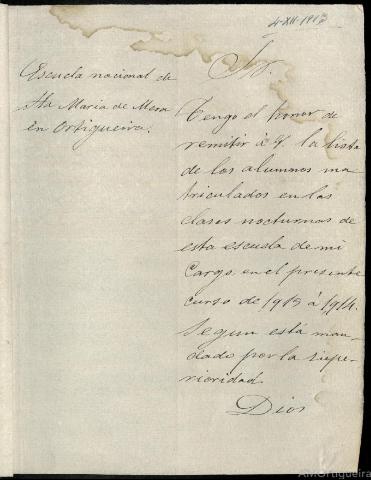 4-XII-1913
Escuela nacional de
Sta Maria de Mera
en Ortigueira.
Sr.
Tengo el honor de
remitir á V. la lista
de los alumnos ma
triculados en las
clases nocturnas de
esta escuela de mi
Cargo en el presente
curso de 1913 á 1914.
Segun está man-
dado por la supe-
rioridad.
Dios
AMOrtigueira